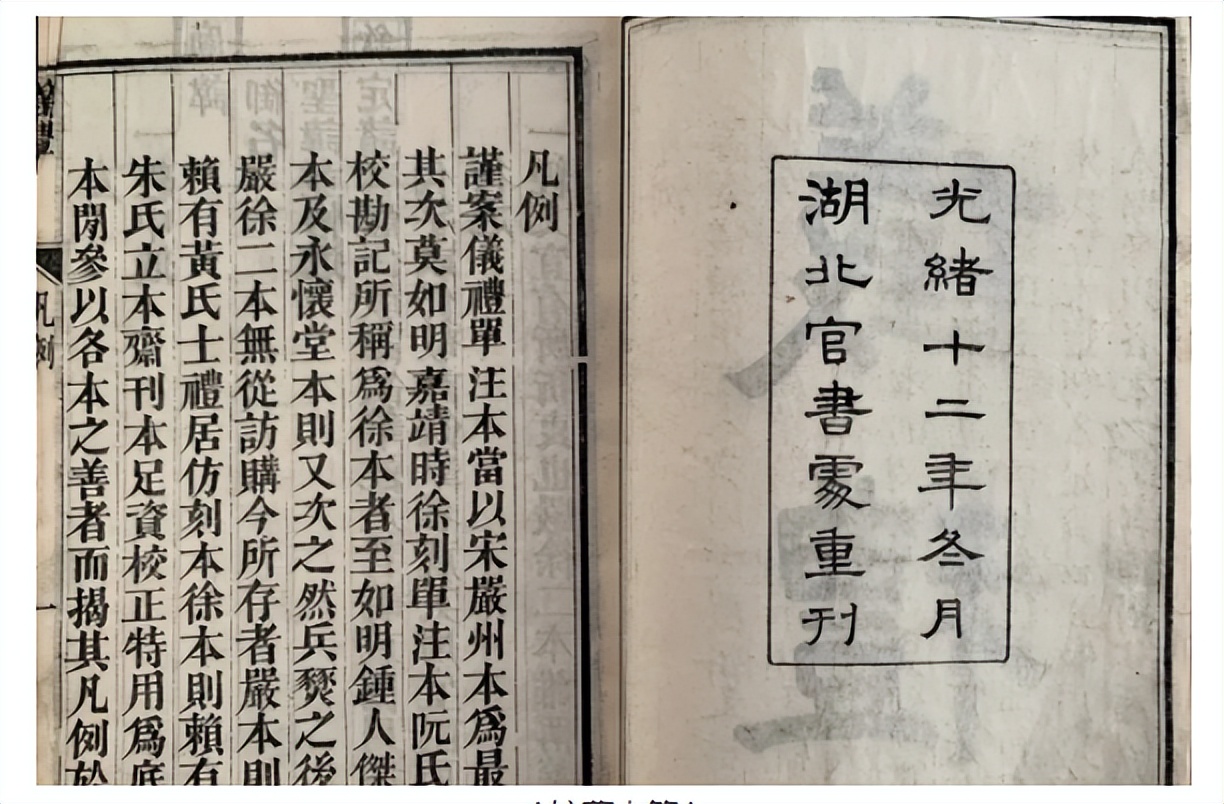 光緒十二年冬月
湖北官書處重刊
凡例
謹案儀禮單注本當以宋嚴州本爲最
其次莫如明嘉靖時徐刻單注本阮氏
校勘記所稱爲徐本者至如明鍾人傑
本及永懷堂本則又次之然兵燹之後
嚴徐二本無從訪購今所存者嚴本則
賴有黃氏士禮居仿刻本徐本則賴有
朱氏立本齋刊本足資校正特用爲底
本閒參以各本之善者而揭其凡例於
凡例
一